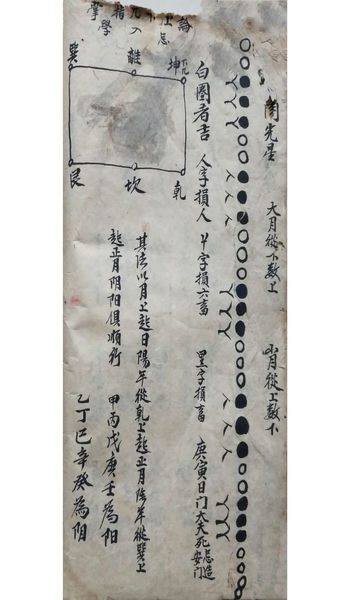 周先星
大月從下數上
小月從上數下
白圈者吉
人字損人
丫字損六畜
黑字損畜
庚寅日门大夫死忌造
安门
巽
離
坤
艮
坎
乾
其法以月上起日陽年從乾上起正月陰年從巽上
起正月阴阳俱順行
甲丙戊庚壬為阳
乙丁己辛癸為阴